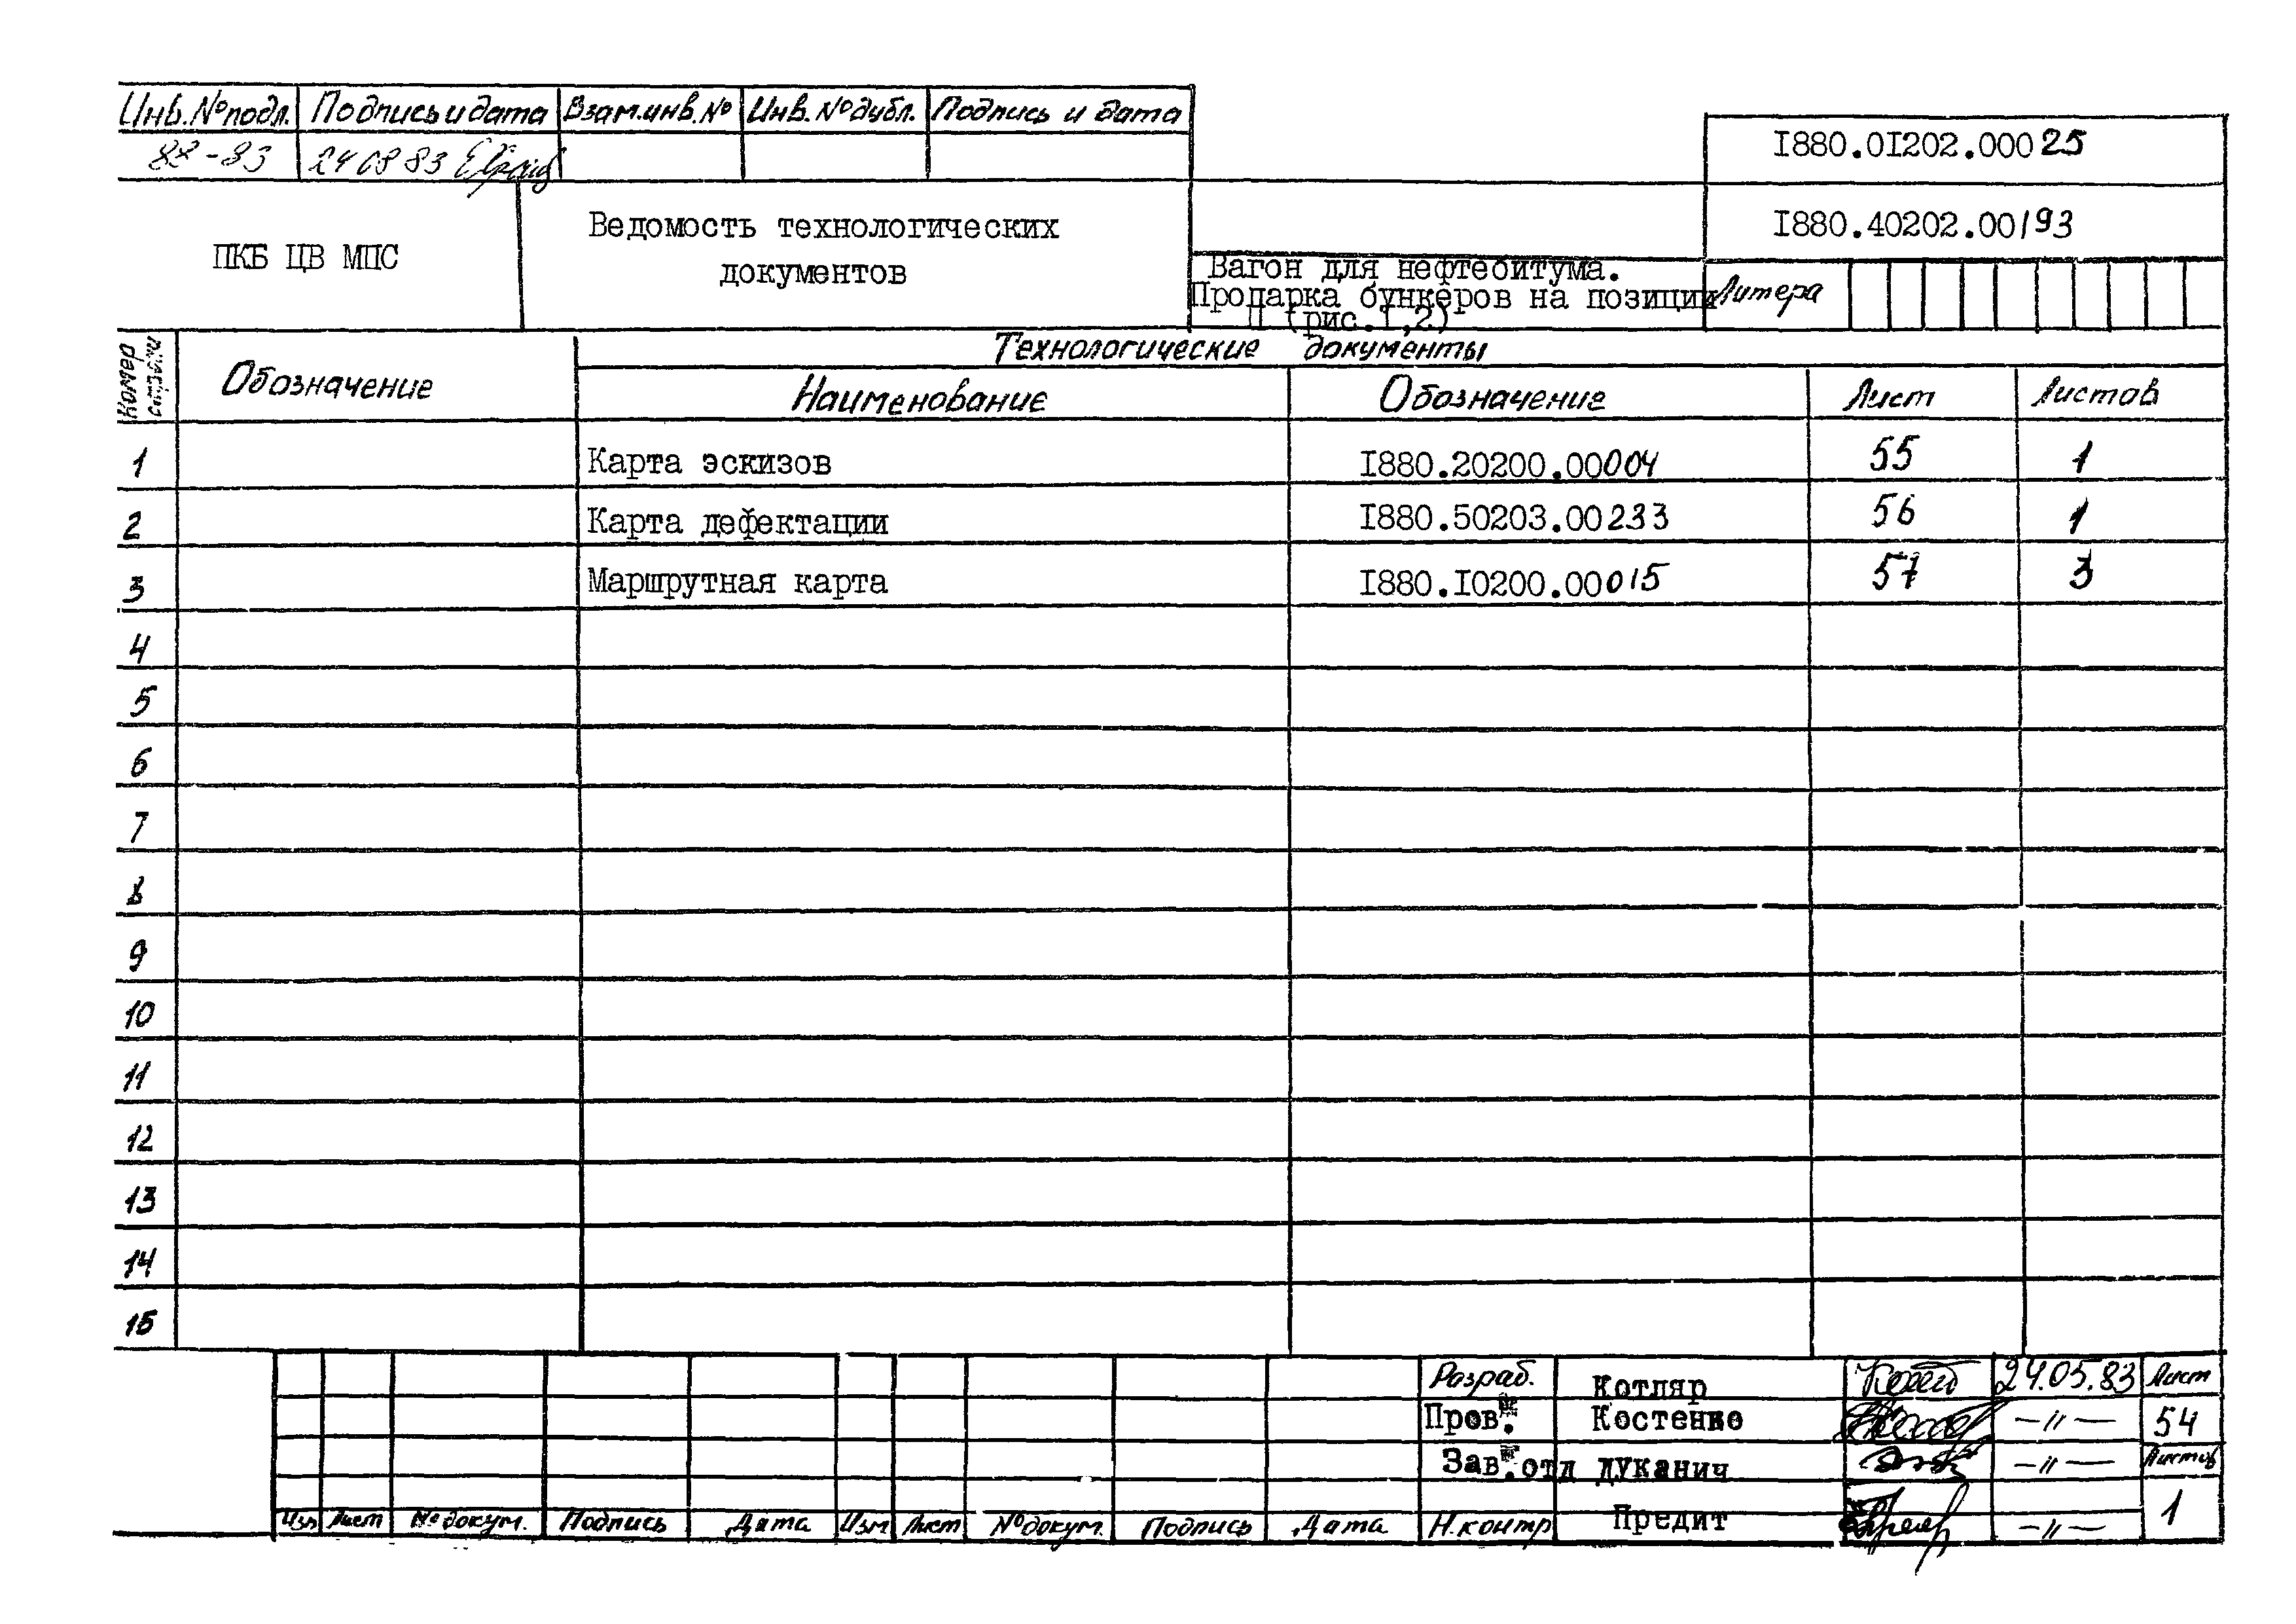 Инв. № подл. Подпись и дата Взам.инв.№ Инв. № дубл. Подпись и дата
88-83 24 08 83
I880.0I202.00025
I880.40202.00193
ПКБ ЦВ МПС
Ведомость технологических
документов
Вагон для нефтебитума.
Пропарка бункеров на позиции
П (рис.I,2)
Литера
Номер строки
Обозначение
Технологические документы
Наименование Обозначение Лист Листов
1 Карта эскизов I880.20200.00004 55 1
2 Карта дефектации I880.50203.00233 56 1
3 Маршрутная карта I880.I0200.00015 57 3
4
5
6
7
8
9
10
11
12
13
14
15
Разраб. Котляр 24.05.83 Лист
Пров. Костенко —〃— 54
Зав.отд Дуканич —〃— Листов
Изм Лист № докум. Подпись Дата Изм Лист № докум. Подпись Дата Н.контр Предит —〃— 1